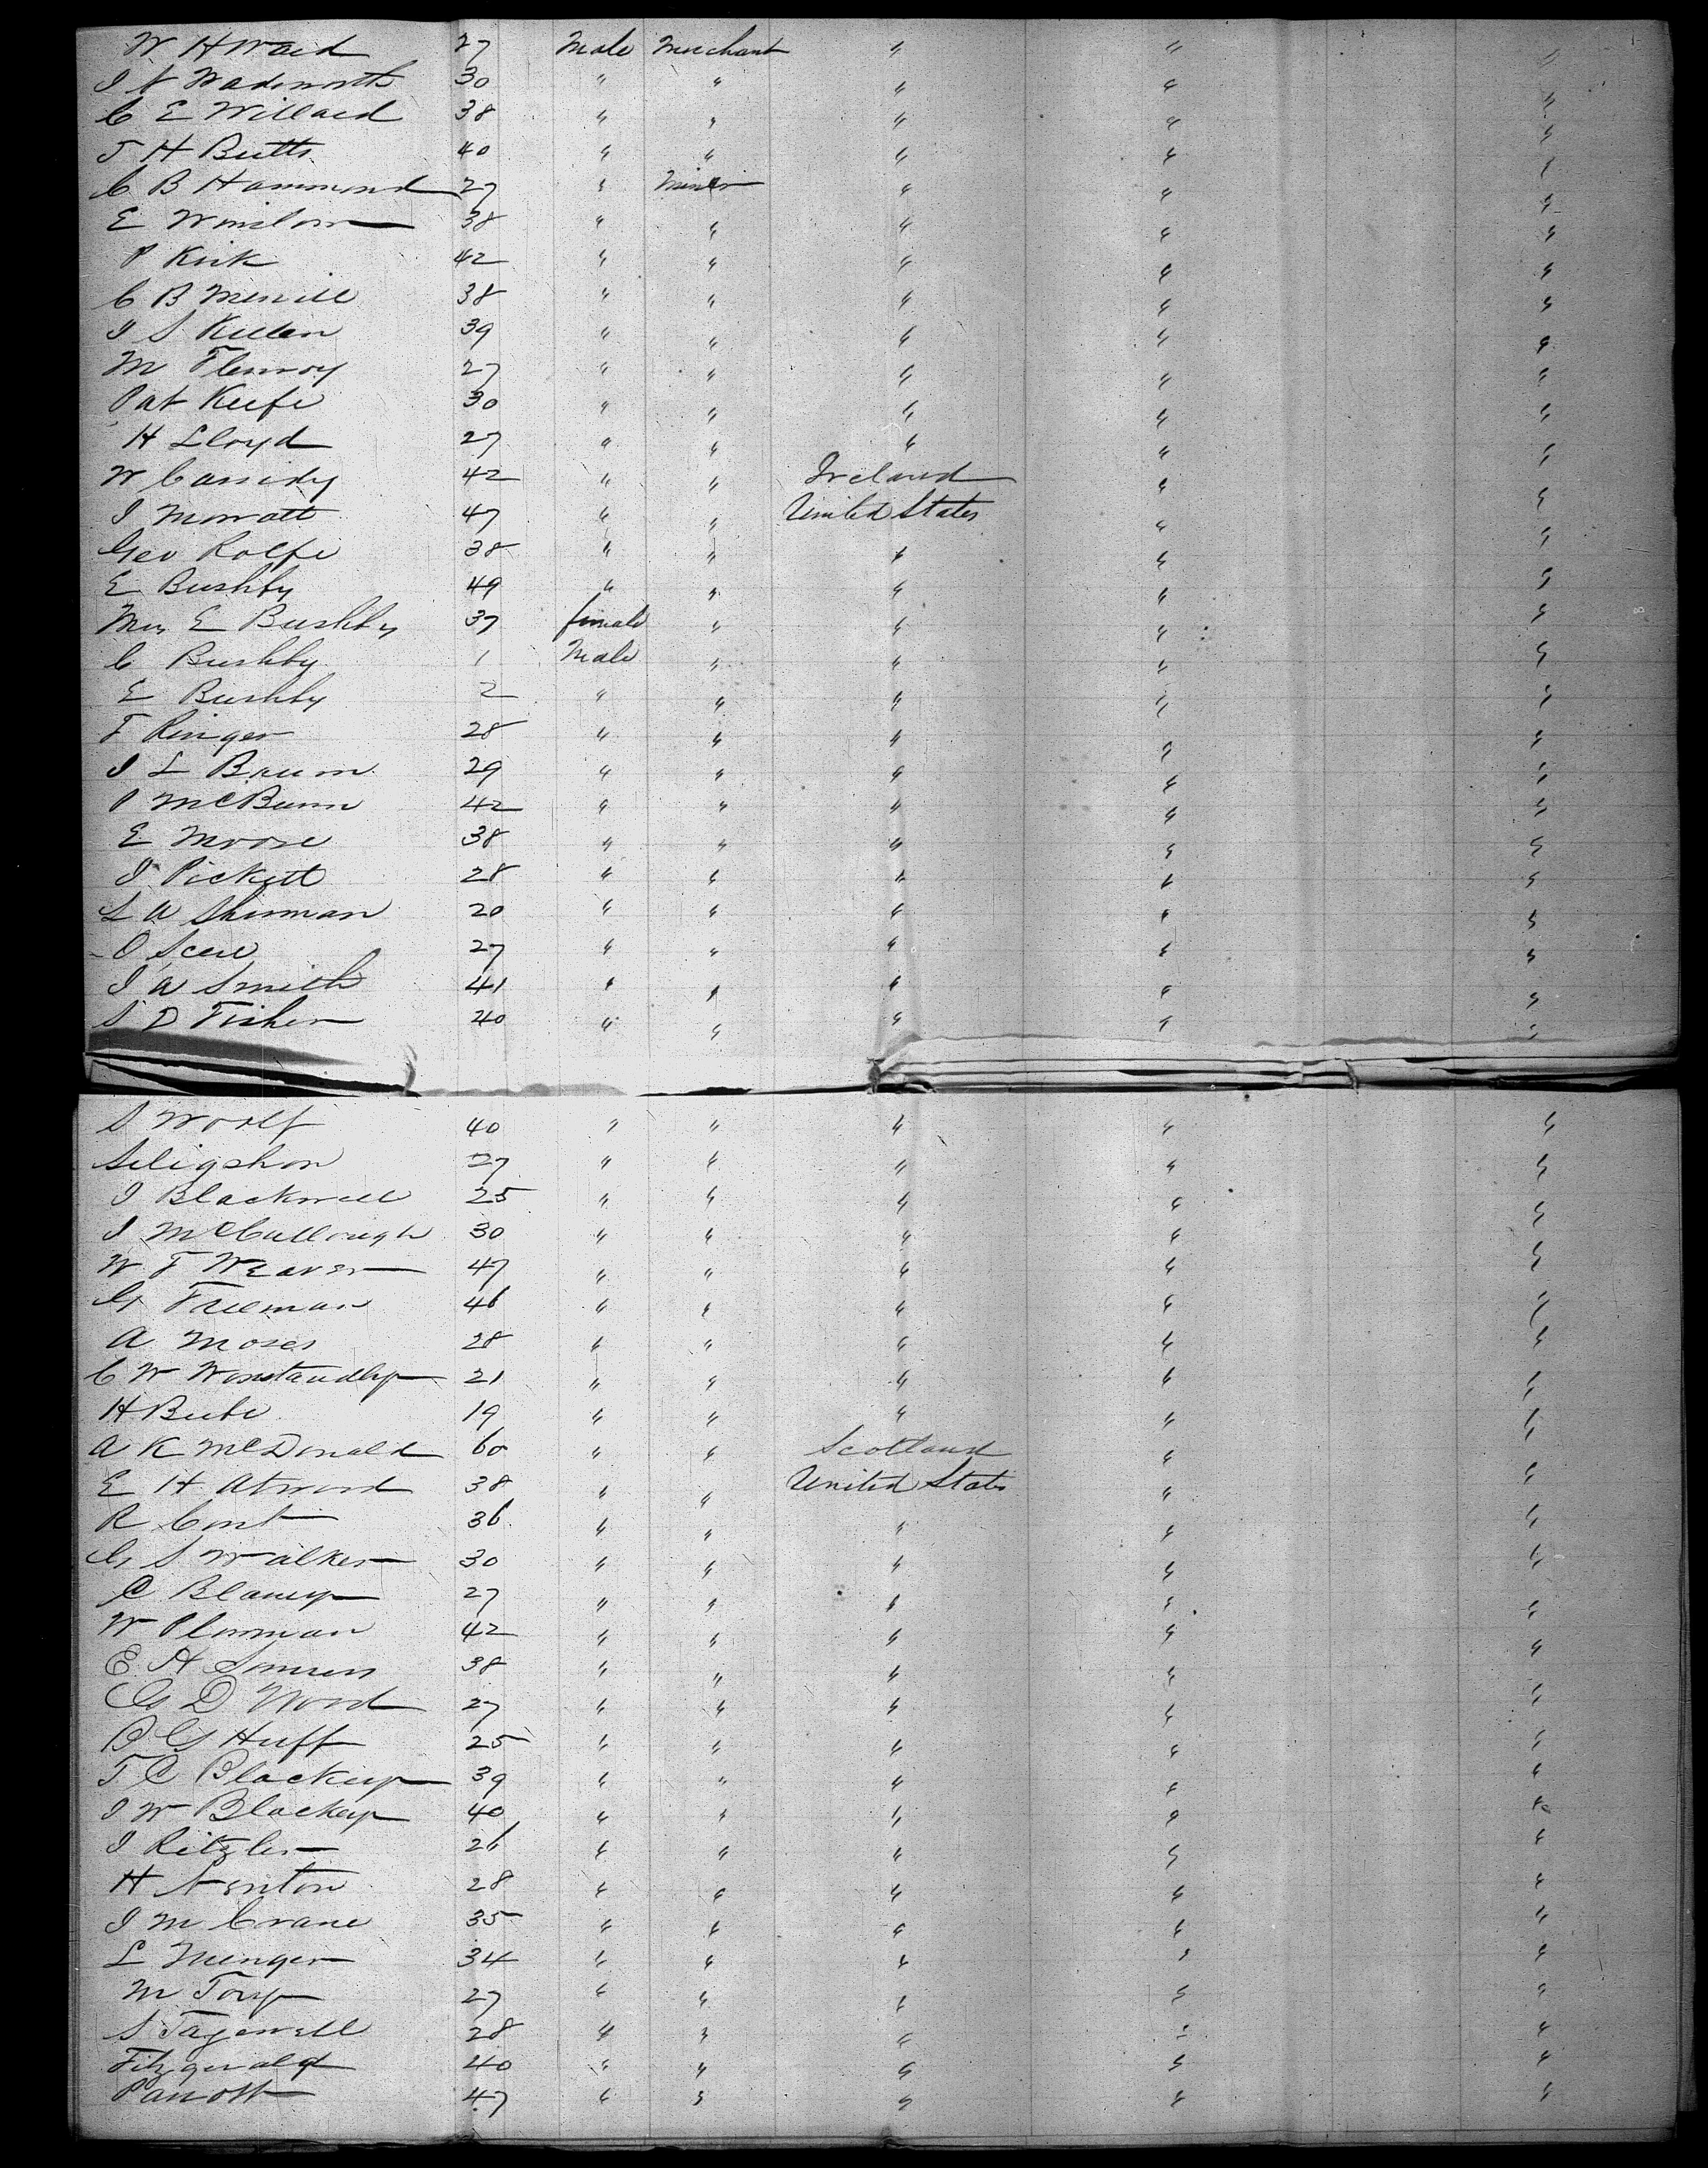 W H Ward 27 Male Merchant " " "
I N Wadsworth 30 " " " " "
C E Willard 38 " " " " "
J H Butts 40 " " " " "
C B Hammond 27 " Miner " " "
E Winslow 38 " " " " "
P Kirk 42 " " " " "
C B Merrill 38 " " " " "
I S Keller 39 " " " " "
M Flemroy 27 " " " " "
Pat Keefe 30 " " " " "
H Lloyd 27 " " " " "
W Cassidy 42 " " Ireland " "
I Mowatt 47 " " United States " "
Geo Rolfe 38 " " " " "
E Bushby 49 " " " " "
Mrs E Bushby 37 female " " " "
C Bushby 1 Male " " " "
E Bushby 2 " " " " "
F Ringer 28 " " " " "
I L Baum 29 " " " " "
P McBunn 42 " " " " "
E Moore 38 " " " " "
I Pickett 28 " " " " "
L A Sherman 20 " " " " "
O 27 " " " " "
I A Smith 41 " " " " "
S D Fisher 40 " " " " "
S Woolf 40 " " " " "
Seligshon 27 " " " " "
I Blackwell 25 " " " " "
I McCullough 30 " " " " "
W F Weaver 47 " " " " "
G Freeman 46 " " " " "
A Moses 28 " " " " "
C W 21 " " " " "
H Beebe 19 " " " " "
A K McDonald 60 " " Scotland " "
E H Atwood 38 " " United States " "
R 36 " " " " "
G S Walker 30 " " " " "
C Blaney 27 " " " " "
W Plowman 42 " " " " "
E H Somers 38 " " " " "
G D Wood 27 " " " " "
B G Huff 25 " " " " "
T C Blockey 39 " " " " "
I W Blockey 40 " " " " "
I Ritzler 26 " " " " "
H Newton 28 " " " " "
I M Crane 35 " " " " "
L Menger 34 " " " " "
M Tory 27 " " " " "
S Tagewell 28 " " " " "
Fitzgerald 40 " " " " "
Parrott 47 " " " " "